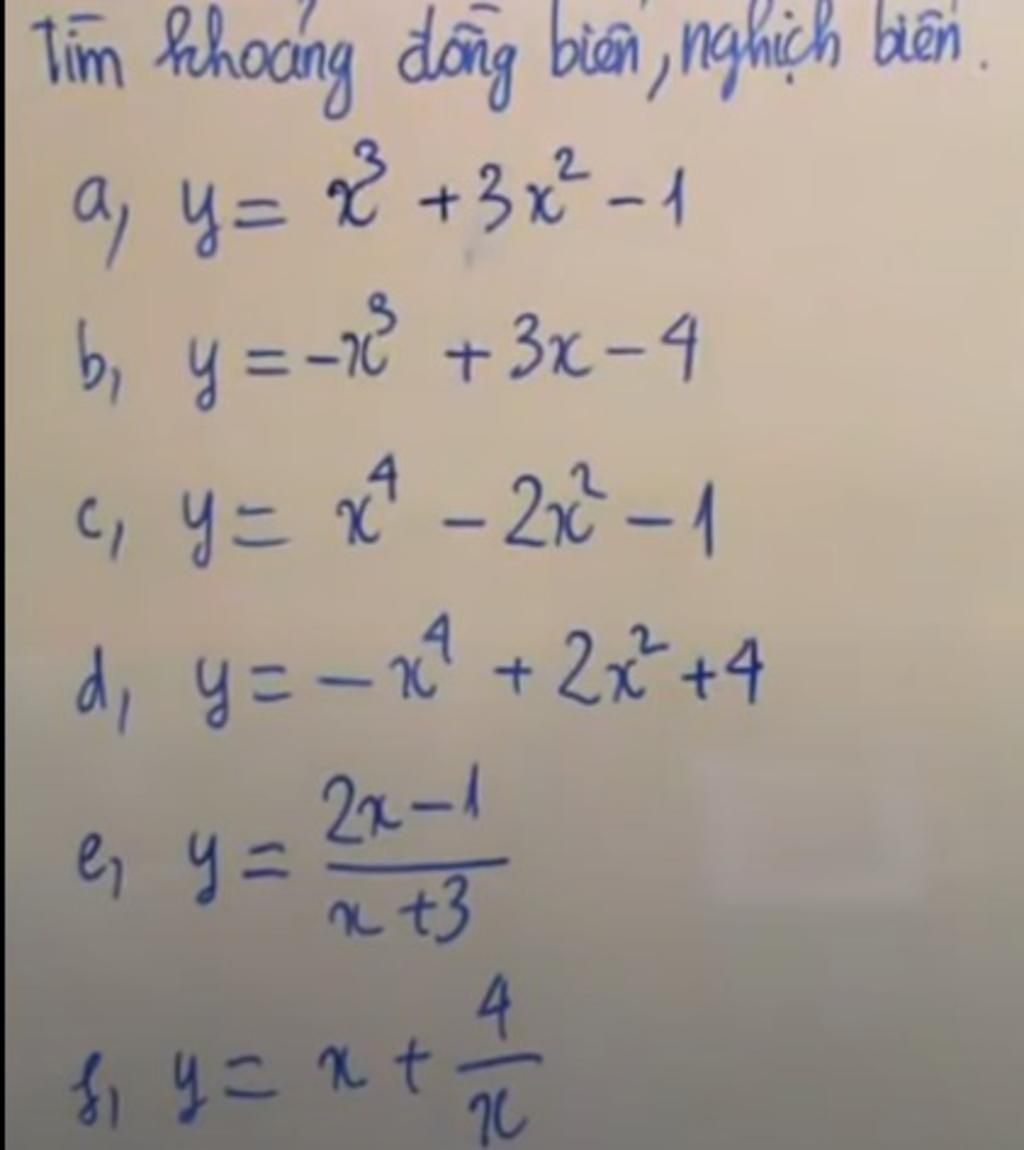 Tìm khoảng đồng biến, nghịch biến.
a, y = x³ + 3x² - 1
b, y = -x³ + 3x - 4
c, y = x⁴ - 2x² - 1
d, y = - x⁴ + 2x² + 4
e, y = (2x - 1)/(x + 3)
f, y = x + 4/x